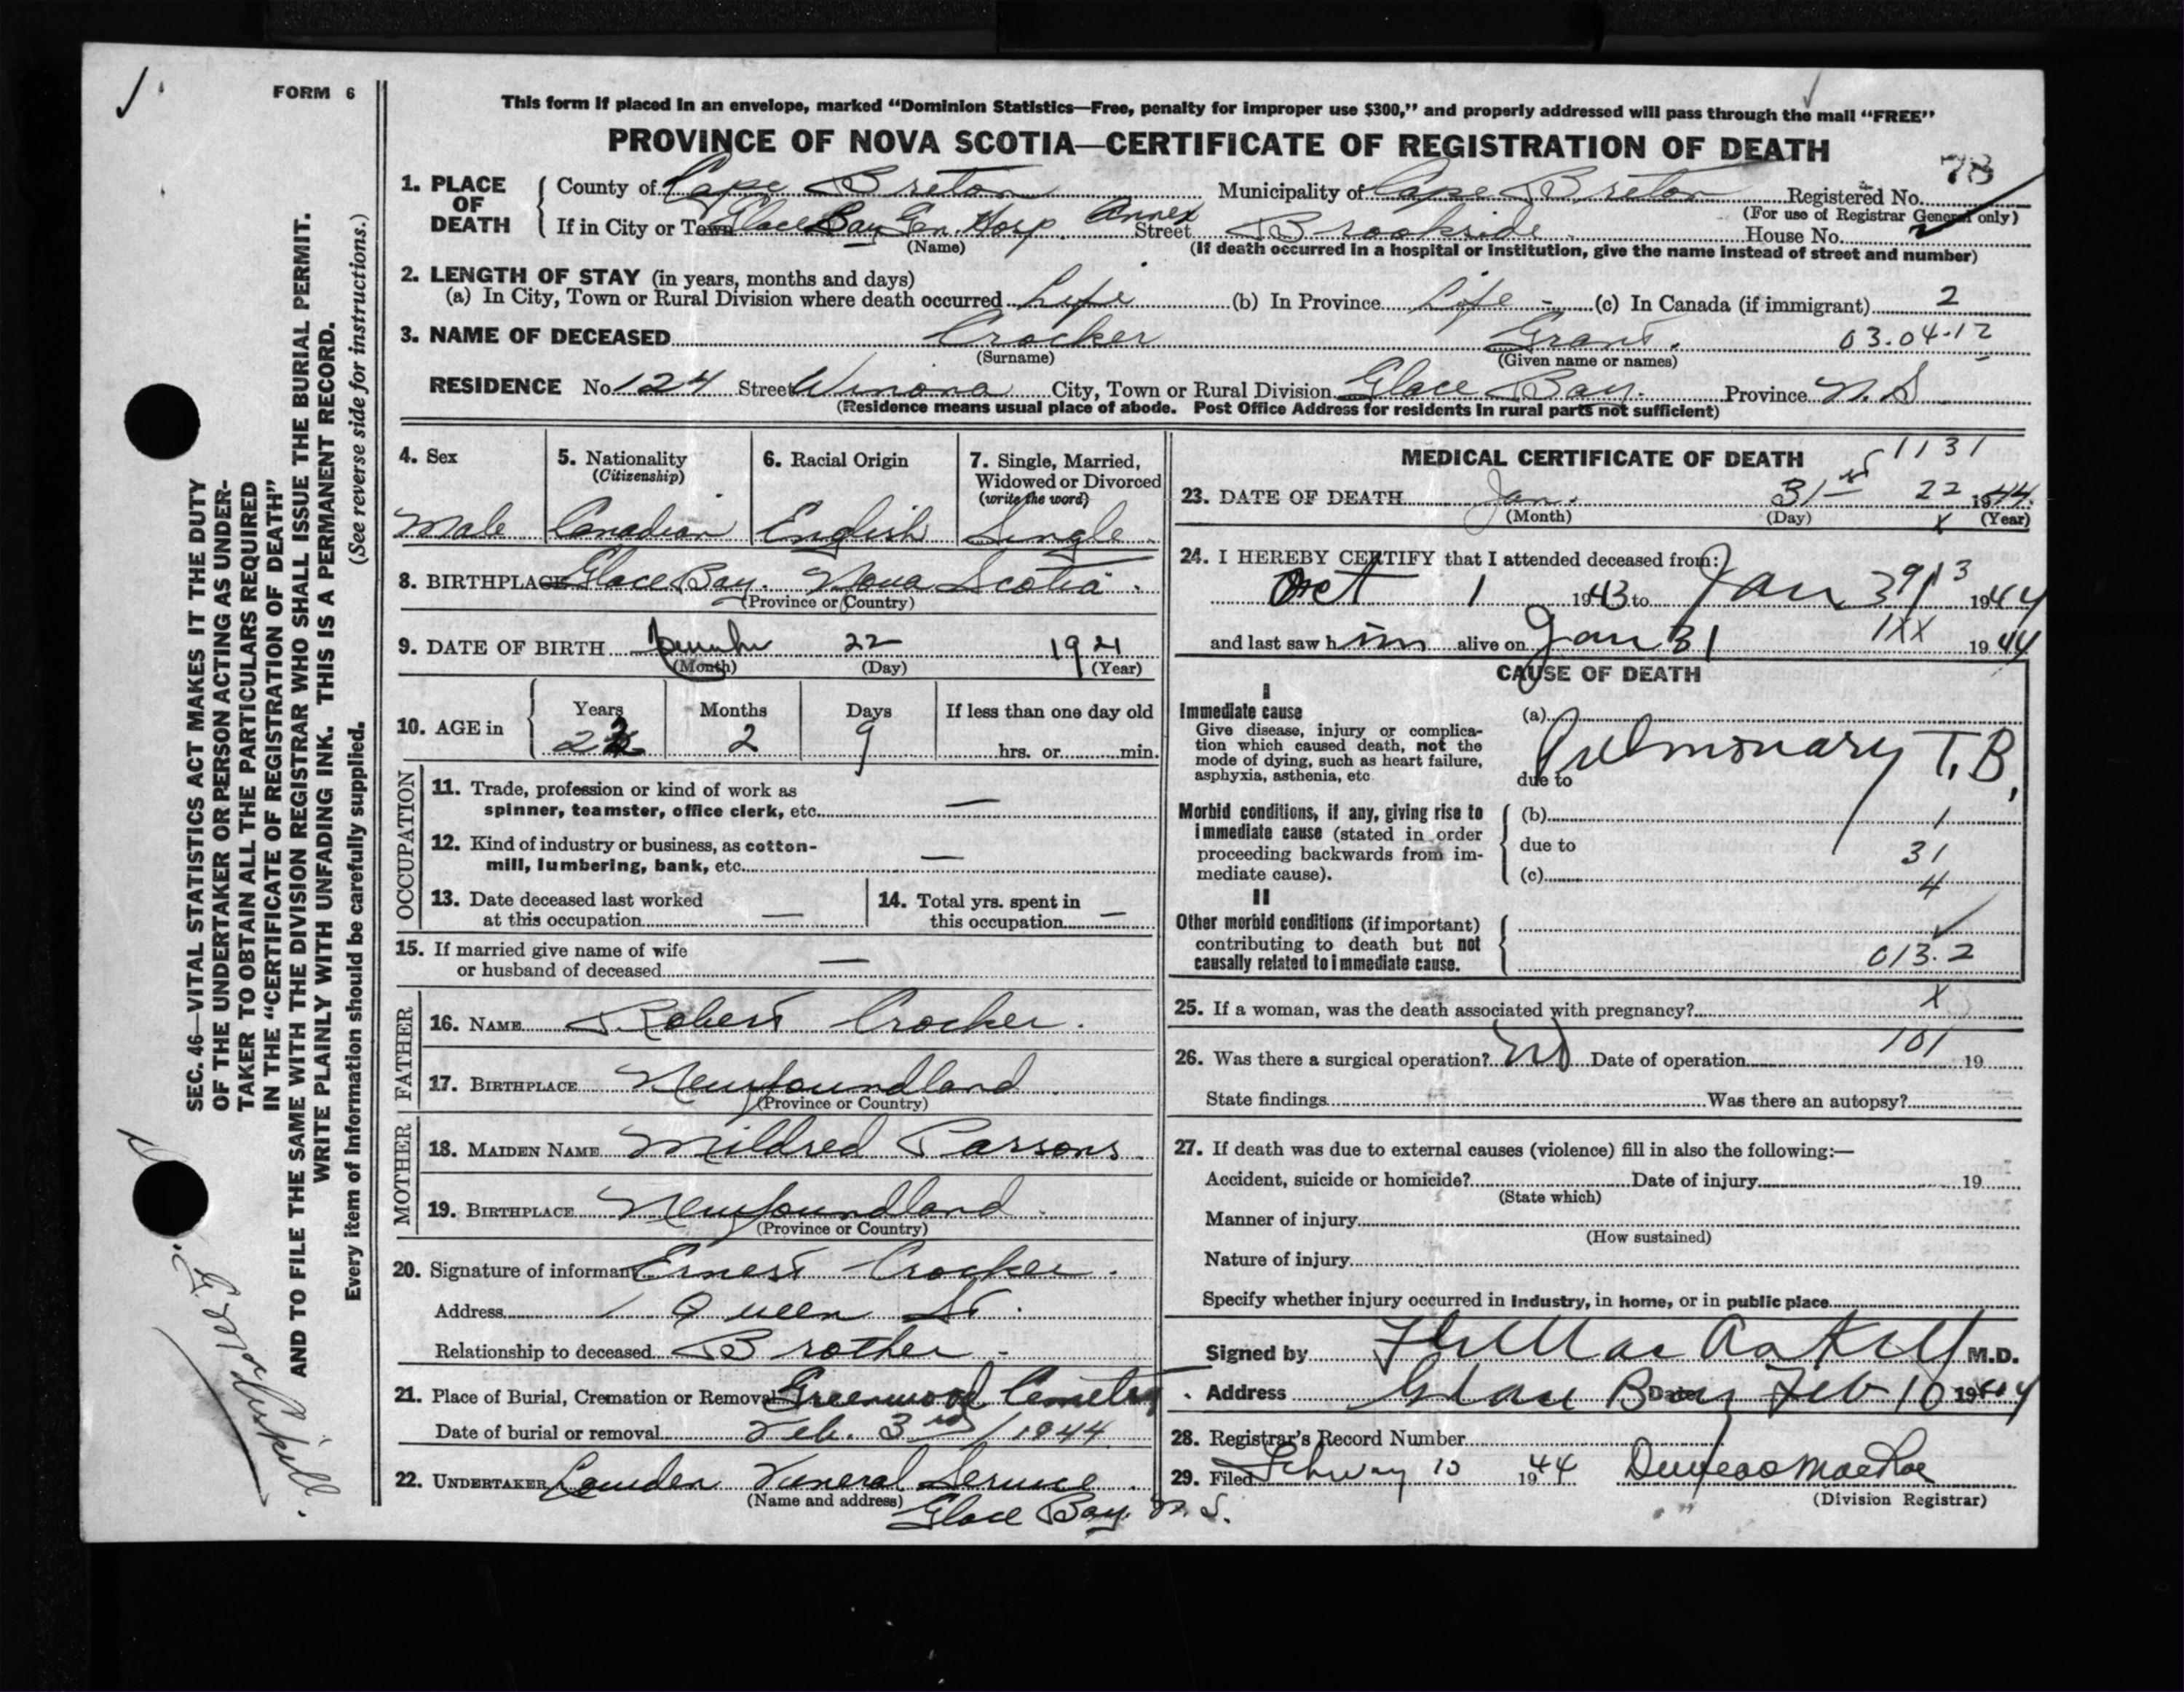 FORM 6
This form if placed in an envelope, marked "Dominion Statistics—Free, penalty for improper use $300," and properly addressed will pass through the mail "FREE"
PROVINCE OF NOVA SCOTIA—CERTIFICATE OF REGISTRATION OF DEATH
78
1. PLACE OF DEATH County of Cape Breton Municipality of Cape Breton Registered No.
(For use of Registrar General only)
If in City or Town Glace Bay Gen. Hosp. Annex Street Brookside House No.
(Name) (If death occurred in a hospital or institution, give the name instead of street and number)
2. LENGTH OF STAY (in years, months and days)
(a) In City, Town or Rural Division where death occurred Life (b) In Province Life - (c) In Canada (if immigrant) 2
3. NAME OF DECEASED Crocker Grant. 03.04.12
(Surname) (Given name or names)
RESIDENCE No. 124 Street Winona City, Town or Rural Division Glace Bay. Province N.S
(Residence means usual place of abode. Post Office Address for residents in rural parts not sufficient)
4. Sex Male
5. Nationality (Citizenship) Canadian
6. Racial Origin English
7. Single, Married, Widowed or Divorced (write the word) Single
8. BIRTHPLACE Glace Bay. Nova Scotia.
(Province or Country)
9. DATE OF BIRTH 22 1921
(Month) (Day) (Year)
10. AGE in Years 22 Months 2 Days 9 If less than one day old hrs. or min.
OCCUPATION
11. Trade, profession or kind of work as spinner, teamster, office clerk, etc. —
12. Kind of industry or business, as cotton-mill, lumbering, bank, etc. —
13. Date deceased last worked at this occupation —
14. Total yrs. spent in this occupation —
15. If married give name of wife or husband of deceased —
FATHER
16. NAME Robert Crocker.
17. BIRTHPLACE Newfoundland
(Province or Country)
MOTHER
18. MAIDEN NAME Mildred Parsons.
19. BIRTHPLACE Newfoundland.
(Province or Country)
20. Signature of informant Ernest Crocker.
Address 1 Queen St.
Relationship to deceased Brother -
21. Place of Burial, Cremation or Removal Greenwood Cemetry
Date of burial or removal Feb. 3rd / 1944
22. UNDERTAKER Funeral Service
(Name and address) Glace Bay. N.S.
MEDICAL CERTIFICATE OF DEATH
1131
23. DATE OF DEATH Jan. 31st 22 1944.
(Month) (Day) X (Year)
24. I HEREBY CERTIFY that I attended deceased from:
Oct 1 1943 to Jan 31 1944
and last saw him alive on Jan 31 1XX 1944
CAUSE OF DEATH
I
Immediate cause
Give disease, injury or complication which caused death, not the mode of dying, such as heart failure, asphyxia, asthenia, etc.
(a) Pulmonary T.B.
due to
Morbid conditions, if any, giving rise to immediate cause (stated in order proceeding backwards from immediate cause).
(b) 1
due to 31
(c) 4
II
Other morbid conditions (if important) contributing to death but not causally related to immediate cause.
013.2
25. If a woman, was the death associated with pregnancy? X
26. Was there a surgical operation? No Date of operation 101 19
State findings Was there an autopsy?
27. If death was due to external causes (violence) fill in also the following:—
Accident, suicide or homicide? Date of injury 19
(State which)
Manner of injury
(How sustained)
Nature of injury
Specify whether injury occurred in industry, in home, or in public place
Signed by M.D.
Address Glace Bay Date Feb 10 1944
28. Registrar's Record Number
29. Filed 10 1944
(Division Registrar)
SEC. 46—VITAL STATISTICS ACT MAKES IT THE DUTY
OF THE UNDERTAKER OR PERSON ACTING AS UNDER-
TAKER TO OBTAIN ALL THE PARTICULARS REQUIRED
IN THE "CERTIFICATE OF REGISTRATION OF DEATH"
AND TO FILE THE SAME WITH THE DIVISION REGISTRAR WHO SHALL ISSUE THE BURIAL PERMIT.
WRITE PLAINLY WITH UNFADING INK. THIS IS A PERMANENT RECORD.
Every item of information should be carefully supplied. (See reverse side for instructions.)